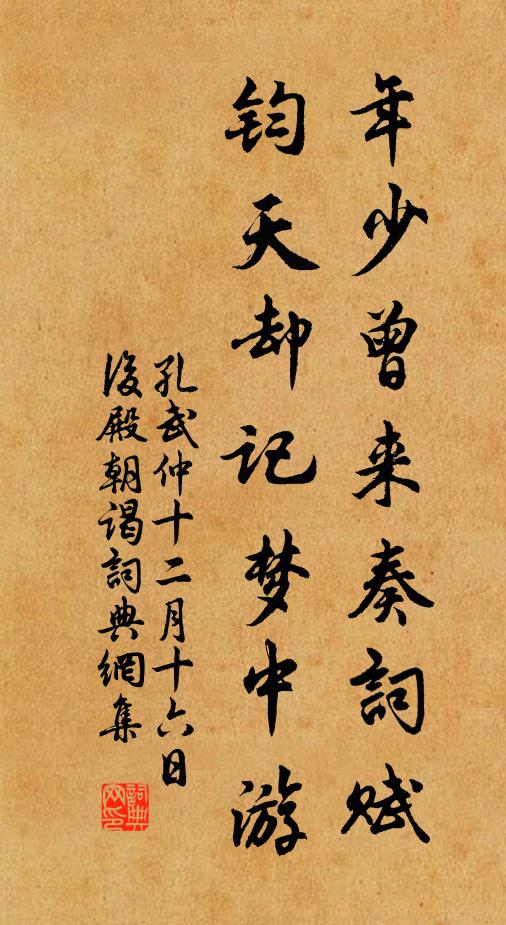 年少曾来奏詞赋
钧天却记梦中游
孔武仲十二月十六日
後殿朝谒詞典網集
詞典
网印